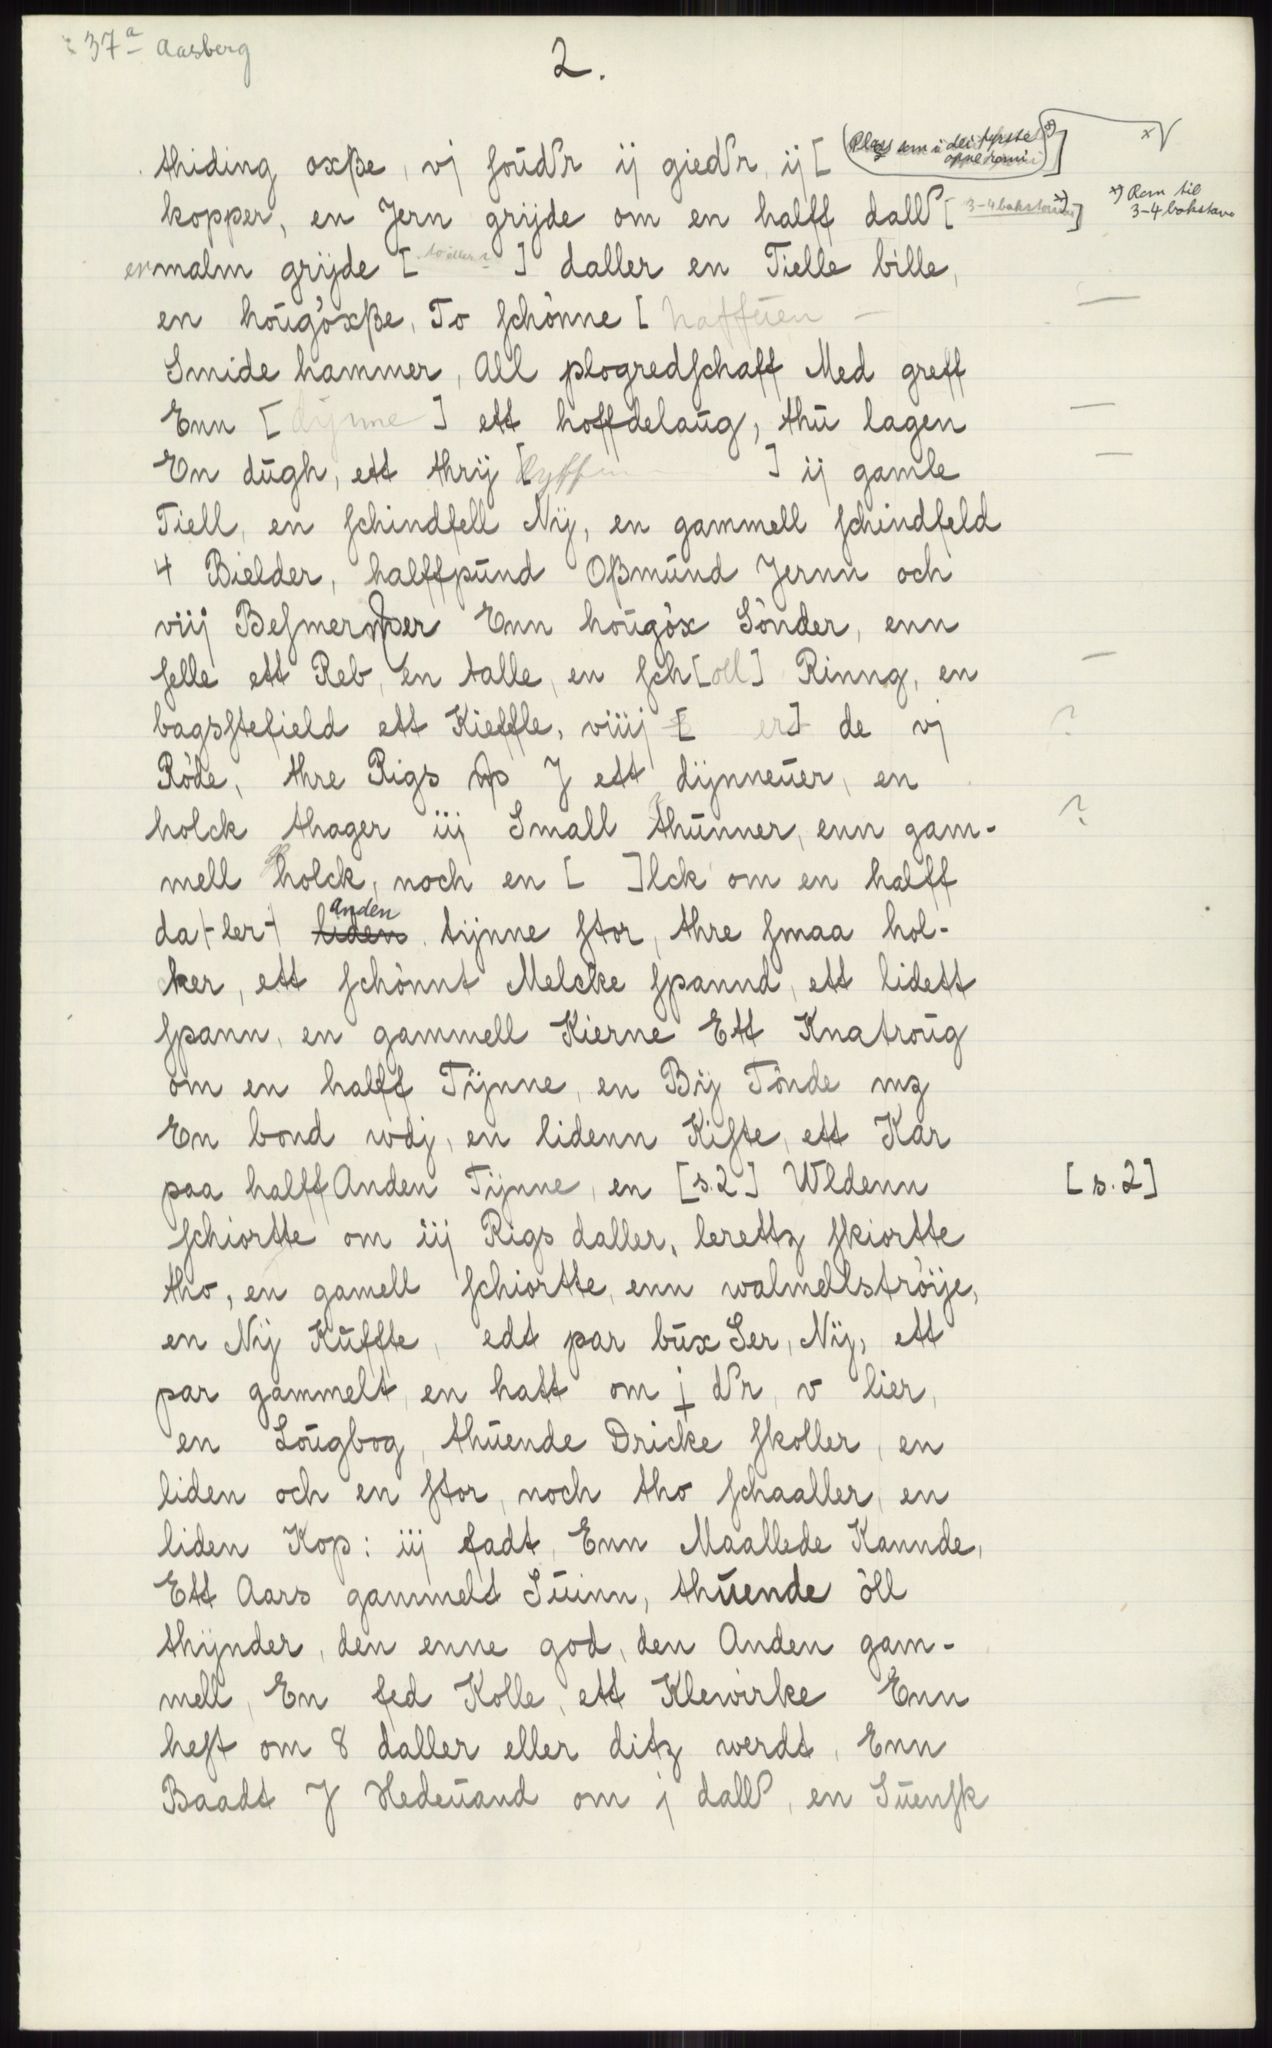 37a Aasberg
2.
thiding oxße, vj foūdr ij giedr, ij [ Plass som i dei fyrste opne *) ]
kopper, en Jern grijde om en halff dall [ 3-4 bokstavar *) ] *) Rom til 3-4 bokstavar
en malm grijde [ ] daller en Tielle bille,
en hoūgòxße, To schònne [ haffūen —
Smide hammer, All plogredschaff Med greff
Enn [ dijnne ] ett hoffdelaūg, thū lagen
En dūgh, ett thrij [ ] ij gamle
Tiell, en schindfell Nij, en gammell schindfeld
4 Bielder, halffpūnd Oßmūnd Jernn och
viij Besmermer Enn hoūgòx Sònder, enn
selle ett Reb, en talle, en sch[oll] Rinng, en
bagsstefield ett Kieffle, viiij [ er] de vj ?
Ròde, thre Rigs J ett dijnneūer, en
holck thager iij Small thūnner, enn gam- ?
mell holck, noch en [ ]lck om en halff
da(-ler-) liden Anden tijnne stor, thre smaa hol-
ker, ett schònnt Melcke spannd, ett lidett
spann, en gammell Kierne Ett Knatroūg
om en halff Tijnne, en Bij Tònde mz
En bond wdj, en lidenn Kiste, ett Kar
paa halff Anden Tijnne, en [s.2] Wldenn [s.2]
schiortte om iij Rigs daller, lerettz skiortte
tho, en gamell schiortte, enn walmellstròije,
en Nij Kūffte, edt par būx Ser, Nij, ett
par gammelt, en hatt om j dr, v lier,
en Loūgbog, thūende Dricke skoller, en
liden och en stor, noch tho schaaller, en
liden Kop: iij fadt, Enn Maallede Kannde,
Ett Aars gammelt Sūinn, thūende òll
thijnder, den enne god, den Anden gam-
mell, En fed Kolle, ett Klewirke Enn
hest om 8 daller eller ditz werdt, Enn
Baadt J Hedeūand om j dall, en Sūensk